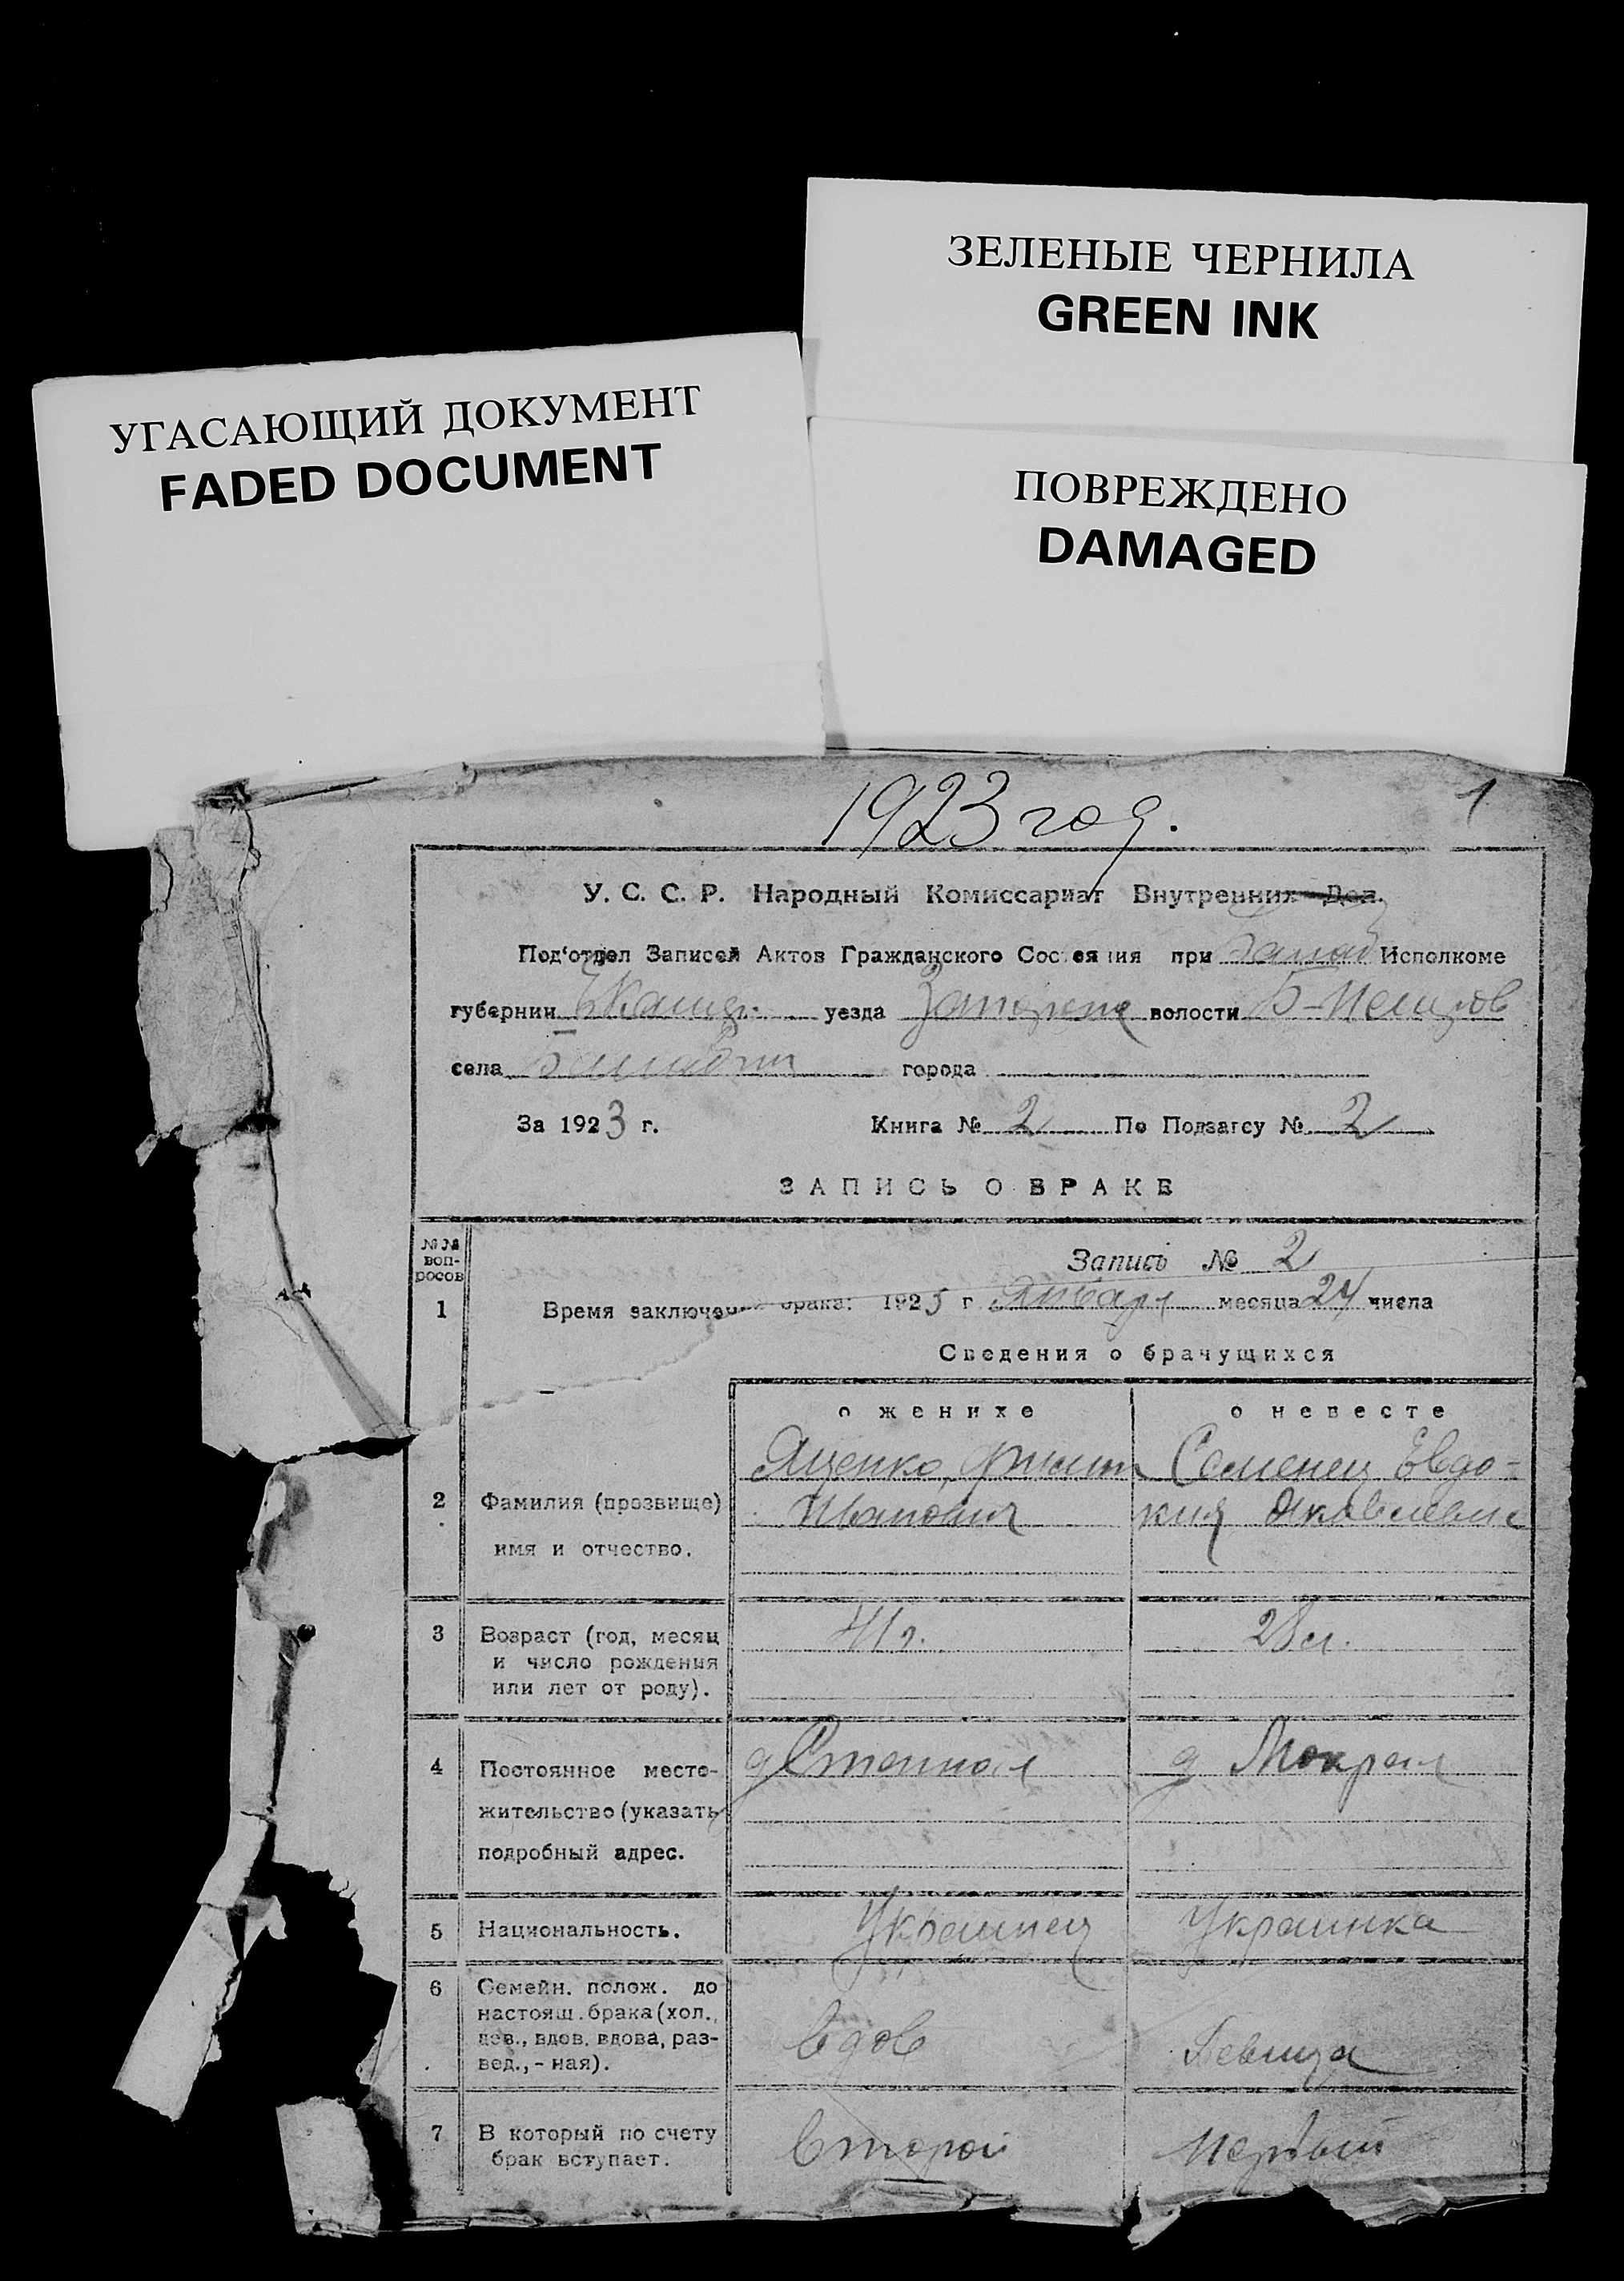 ЗЕЛЕНЫЕ ЧЕРНИЛА
GREEN INK
УГАСАЮЩИЙ ДОКУМЕНТ
FADED DOCUMENT
ПОВРЕЖДЕНО
DAMAGED
1923 год.
1
У. С. С. Р. Народный Комиссариат Внутренних Дел.
Под'отдел Записей Актов Гражданского Состояния при Исполкоме
губернии уезда волости
села города
За 1923 г. Книга № 2 По Подзагсу № 2
ЗАПИСЬ О БРАКЕ
№№ воп-
росов
Запись № 2
1 Время заключен брака: 1923 г. Января месяца 24 числа
Сведения о брачущихся
о женихе о невесте
Яценко, Семенец Евдо-
2 Фамилия (прозвище) Иванович кия Яковлевна
имя и отчество.
3 Возраст (год, месяц 41 г. 28 л.
и число рождения
или лет от роду).
4 Постоянное место- д Степная д Мокрая
жительство (указать
подробный адрес.
5 Национальность. Украинец Украинка
6 Семейн. полож. до
настоящ. брака (хол.,
дев., вдов. вдова, раз- вдов Девица
вед., - ная).
7 В который по счету Второй Первый
брак вступает.